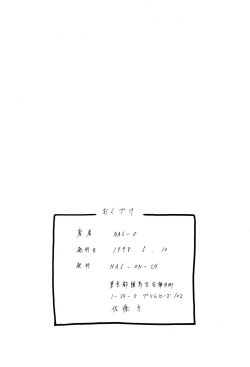 おくづけ
著者 NAS-O
発行日 1998. 5. 10
発行 NAS-ON-CH
東京都練馬区石神井町
1-25-8 102
佐藤